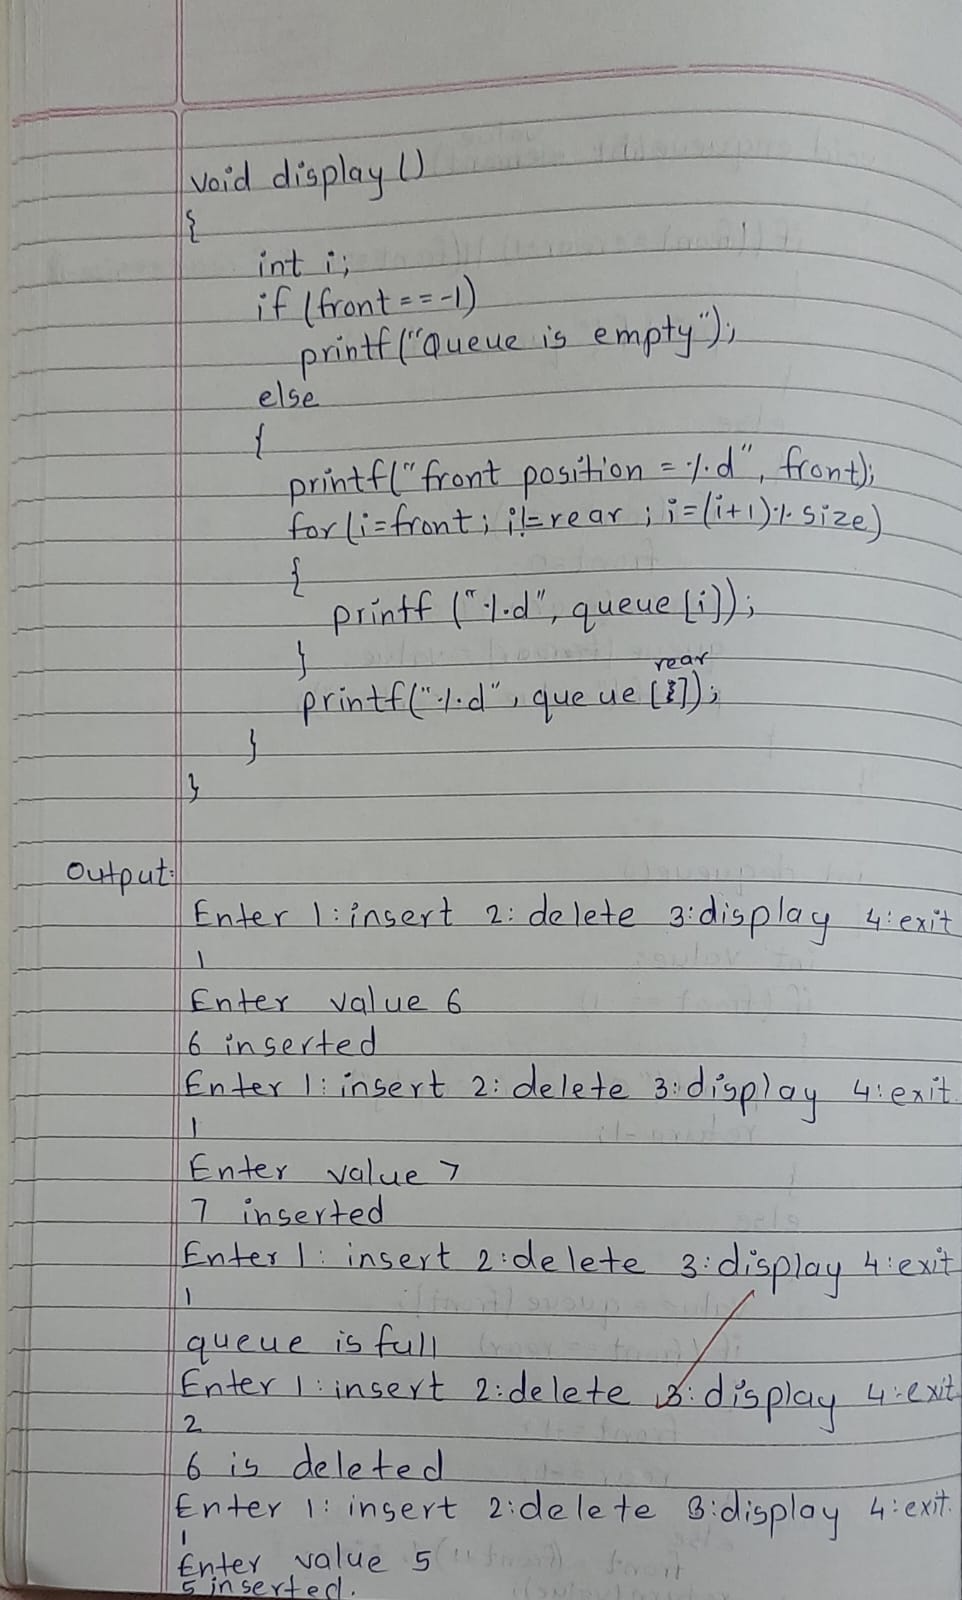 void display ()
{
int i;
if (front == -1)
printf("Queue is empty");
else
{
printf("front position = %d", front);
for (i=front; i!=rear; i=(i+1)%size)
{
printf ("%d", queue[i]);
}
rear
printf("%d", queue []);
}
}
Output:
Enter 1:insert 2: delete 3:display 4:exit
1
Enter value 6
6 inserted
Enter 1: insert 2: delete 3:display 4:exit.
1
Enter value 7
7 inserted
Enter 1: insert 2:delete 3:display 4:exit
1
queue is full
Enter 1:insert 2:delete 3:display 4:exit
2
6 is deleted
Enter 1: insert 2:delete 3:display 4:exit.
1
Enter value 5
5 inserted.